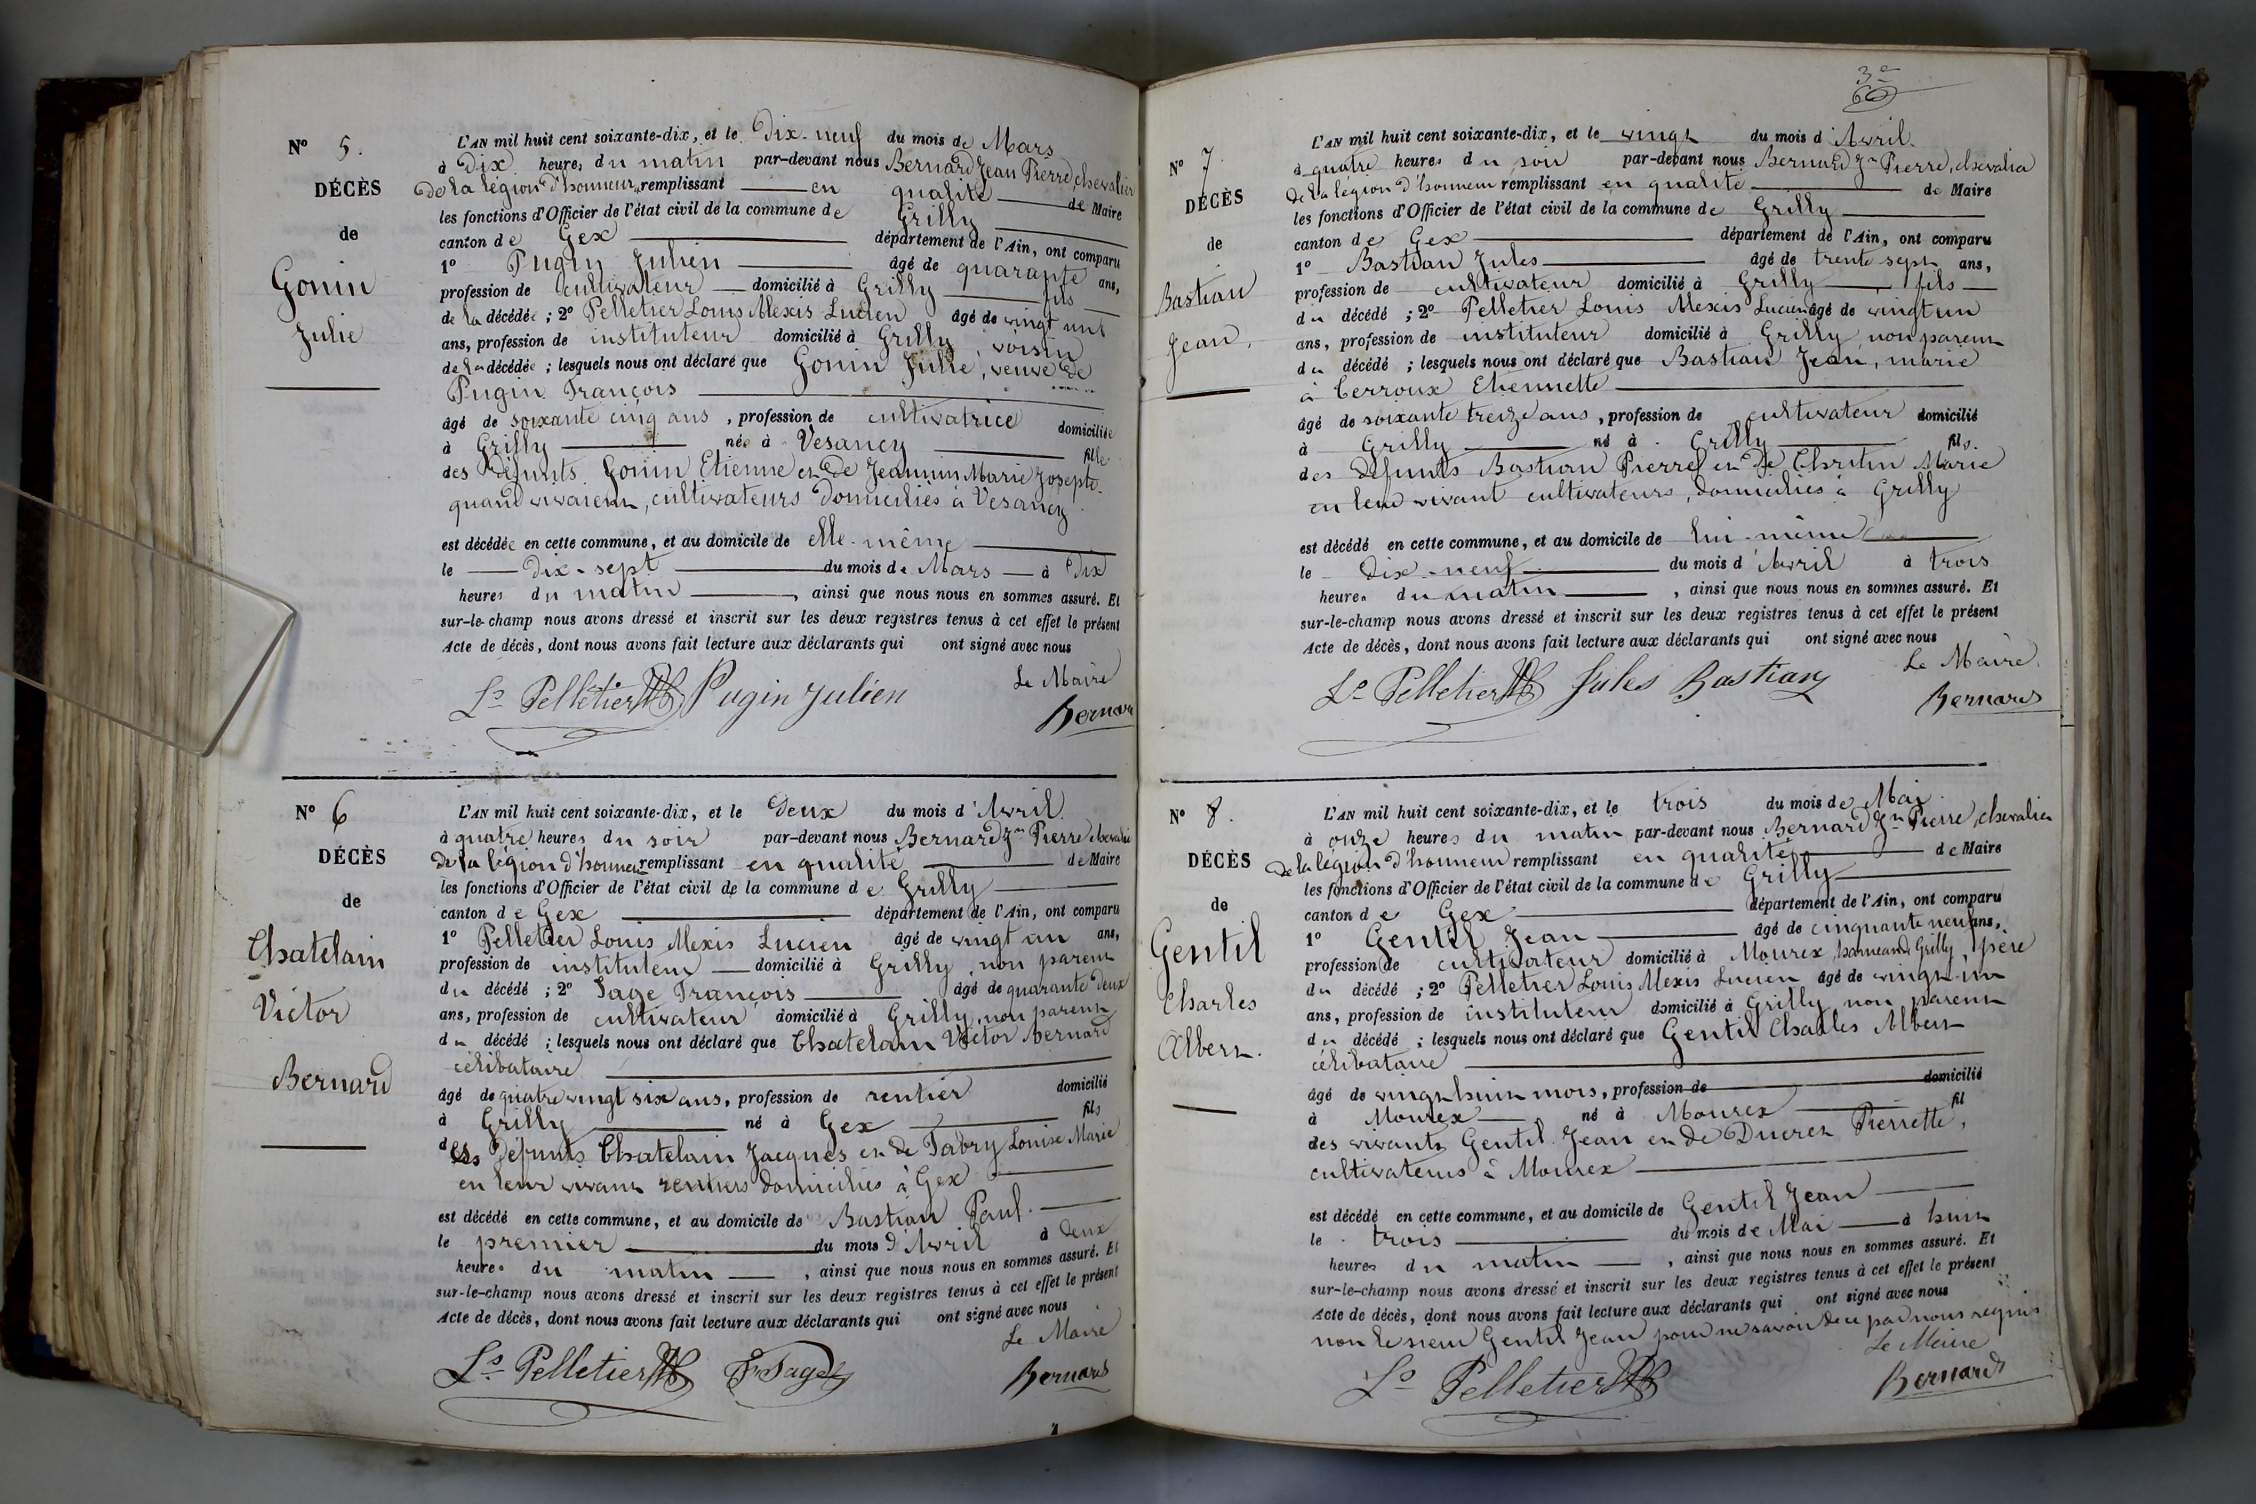 N° 5.
DÉCÈS
de
Gonin
Julie
L'AN mil huit cent soixante-dix, et le Dix-neuf du mois de Mars
à Dix heures du matin par-devant nous Bernard Jean Pierre, chevalier
de la légion d'honneur, remplissant en qualité de Maire
les fonctions d'Officier de l'état civil de la commune de Grilly
canton de Gex département de l'Ain, ont comparu
1° Pugin Julien âgé de quarante ans,
profession de cultivateur domicilié à Grilly fils
de la décédée ; 2° Pelletier Louis Alexis Lucien âgé de vingt un
ans, profession de instituteur domicilié à Grilly, voisin
de la décédée ; lesquels nous ont déclaré que Gonin Julie, veuve de
Pugin François
âgé de soixante cinq ans, profession de cultivatrice domiciliée
à Grilly née à Vesancy fille
des défunts Gonin Etienne et de Jeannin Marie Josephte
quand vivaient, cultivateurs domiciliés à Vesancy
est décédée en cette commune, et au domicile de elle-même
le dix-sept du mois de Mars à Dix
heures du matin, ainsi que nous nous en sommes assuré. Et
sur-le-champ nous avons dressé et inscrit sur les deux registres tenus à cet effet le présent
Acte de décès, dont nous avons fait lecture aux déclarants qui ont signé avec nous
Le Maire
Ls Pelletier Pugin Julien Bernard
N° 6
DÉCÈS
de
Chatelain
Victor
Bernard
L'AN mil huit cent soixante-dix, et le Deux du mois d'Avril
à quatre heures du soir par-devant nous Bernard Jn Pierre chevalier
de la légion d'honneur remplissant en qualité de Maire
les fonctions d'Officier de l'état civil de la commune de Grilly
canton de Gex département de l'Ain, ont comparu
1° Pelletier Louis Alexis Lucien âgé de vingt un ans,
profession de instituteur domicilié à Grilly, non parent
du décédé ; 2° Sage François âgé de quarante deux
ans, profession de cultivateur domicilié à Grilly, non parent
du décédé ; lesquels nous ont déclaré que Chatelain Victor Bernard
célibataire
âgé de quatre vingt six ans, profession de rentier domicilié
à Grilly né à Gex fils
des défunts Chatelain Jacques et de Fabry Louise Marie
en leur vivant rentiers domiciliés à Gex
est décédé en cette commune, et au domicile de Bastian Paul.
le premier du mois d'Avril à deux
heures du matin, ainsi que nous nous en sommes assuré. Et
sur-le-champ nous avons dressé et inscrit sur les deux registres tenus à cet effet le présent
Acte de décès, dont nous avons fait lecture aux déclarants qui ont signé avec nous
Le Maire
Ls Pelletier F Sage Bernard
N° 7
DÉCÈS
de
Bastian
Jean.
L'AN mil huit cent soixante-dix, et le vingt du mois d'Avril.
à quatre heures du soir par-devant nous Bernard Jn Pierre, chevalier
de la légion d'honneur remplissant en qualité de Maire
les fonctions d'Officier de l'état civil de la commune de Grilly
canton de Gex département de l'Ain, ont comparu
1° Bastian Jules âgé de trente sept ans,
profession de cultivateur domicilié à Grilly, fils
du décédé ; 2° Pelletier Louis Alexis Lucien âgé de vingt un
ans, profession de instituteur domicilié à Grilly non parent
du décédé ; lesquels nous ont déclaré que Bastian Jean, marié
à Cerroux Etiennette
âgé de soixante treize ans, profession de cultivateur domicilié
à Grilly né à Grilly fils.
des défunts Bastian Pierre et de Christin Marie
en leur vivant cultivateurs, domiciliés à Grilly
est décédé en cette commune, et au domicile de lui-même
le Dix-neuf du mois d'Avril à trois
heures du matin, ainsi que nous nous en sommes assuré. Et
sur-le-champ nous avons dressé et inscrit sur les deux registres tenus à cet effet le présent
Acte de décès, dont nous avons fait lecture aux déclarants qui ont signé avec nous
Le Maire.
Ls Pelletier Jules Bastian Bernard
N° 8.
DÉCÈS
de
Gentil
Charles
Albert.
L'AN mil huit cent soixante-dix, et le trois du mois de Mai
à onze heures du matin par-devant nous Bernard Jn Pierre, chevalier
de la légion d'honneur remplissant en qualité de Maire
les fonctions d'Officier de l'état civil de la commune de Grilly
canton de Gex département de l'Ain, ont comparu
1° Gentil Jean âgé de cinquante neuf ans,
profession de cultivateur domicilié à Mourex, hameau de Grilly, père
du décédé ; 2° Pelletier Louis Alexis Lucien âgé de vingt-un
ans, profession de instituteur domicilié à Grilly, non parent
du décédé ; lesquels nous ont déclaré que Gentil Charles Albert
célibataire
âgé de vingt huit mois, profession de domicilié
à Mourex né à Mourex fil
des vivants Gentil Jean et de Ducret Pierrette,
cultivateurs à Mourex
est décédé en cette commune, et au domicile de Gentil Jean
le trois du mois de Mai à huit
heures du matin, ainsi que nous nous en sommes assuré. Et
sur-le-champ nous avons dressé et inscrit sur les deux registres tenus à cet effet le présent
Acte de décès, dont nous avons fait lecture aux déclarants qui ont signé avec nous
non le sieur Gentil Jean pour ne savoir de ce par nous requis
Le Maire
Ls Pelletier Bernard